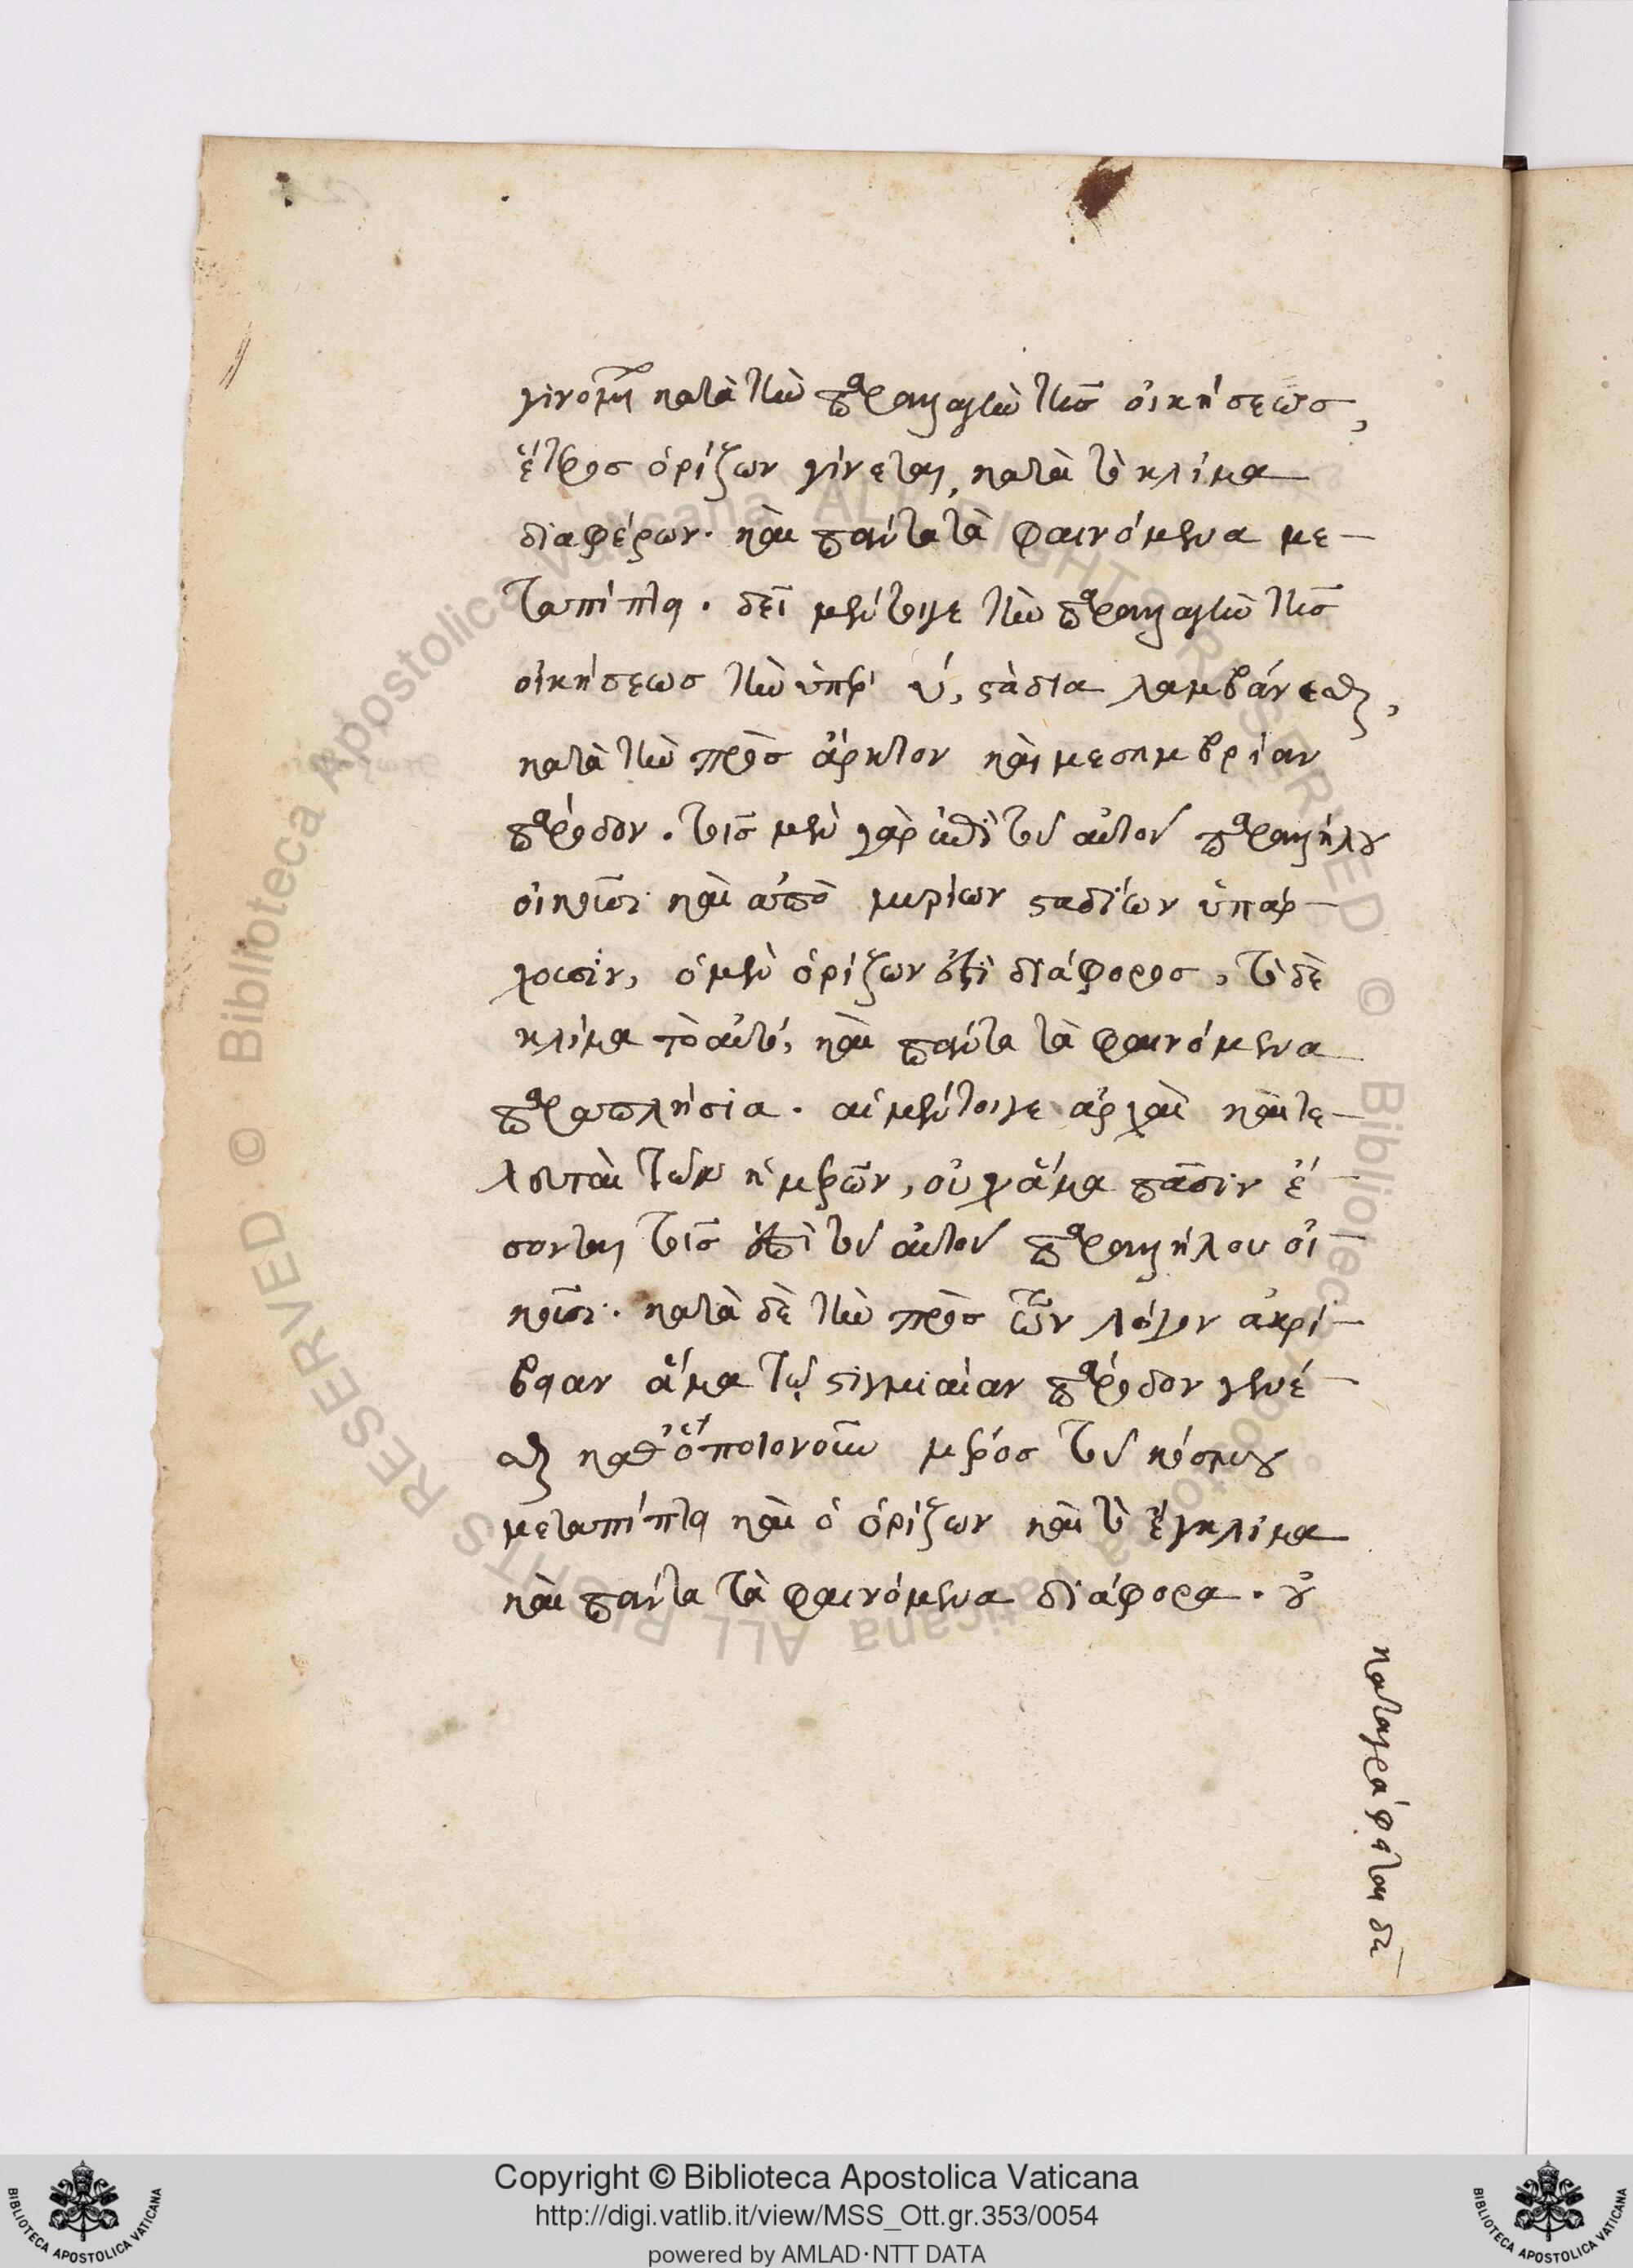 γινομένη κατὰ τὴν παραλλαγὴν τῆς οἰκήσεως,
ἕτερος ὁρίζων γίνεται, κατὰ τὸ κλίμα
διαφέρων. καὶ πάντα τὰ φαινόμενα με-
ταπίπτει. δεῖ μέντοιγε τὴν παραλλαγὴν τῆς
οἰκήσεως τὴν ὑπὲρ υ, στάδια λαμβάνεσθαι,
κατὰ τὴν πρὸς ἄρκτον καὶ μεσημβρίαν
πάροδον. τοῖς μὲν γὰρ ἐπὶ τοῦ αὐτοῦ παραλλήλου
οἰκοῦσι καὶ ἀπὸ μυρίων σταδίων ὑπάρ-
χουσιν, ὁ μὲν ὁρίζων ἐστὶ διάφορος, τὸ δὲ
κλίμα τὸ αὐτό, καὶ πάντα τὰ φαινόμενα
παραπλήσια. αἱ μέντοιγε ἀρχαὶ καὶ τε-
λευταὶ τῶν ἡμερῶν, οὐχ ἅμα πᾶσιν ἔ-
σονται τοῖς ἐπὶ τοῦ αὐτοῦ παραλλήλου οἰ-
κοῦσι. κατὰ δὲ τὴν πρὸς τὸν λόγον ἀκρί-
βειαν ἅμα τῷ στιγμιαίαν πάροδον γενέ-
σθαι καθ' ὁποιονοῦν μέρος τοῦ κόσμου
μεταπίπτει καὶ ὁ ὁρίζων καὶ τὸ ἔγκλιμα
καὶ πάντα τὰ φαινόμενα διάφορα. οὐ
καταγράφεται δὲ
Copyright © Biblioteca Apostolica Vaticana
http://digi.vatlib.it/view/MSS_Ott.gr.353/0054
powered by AMLAD·NTT DATA